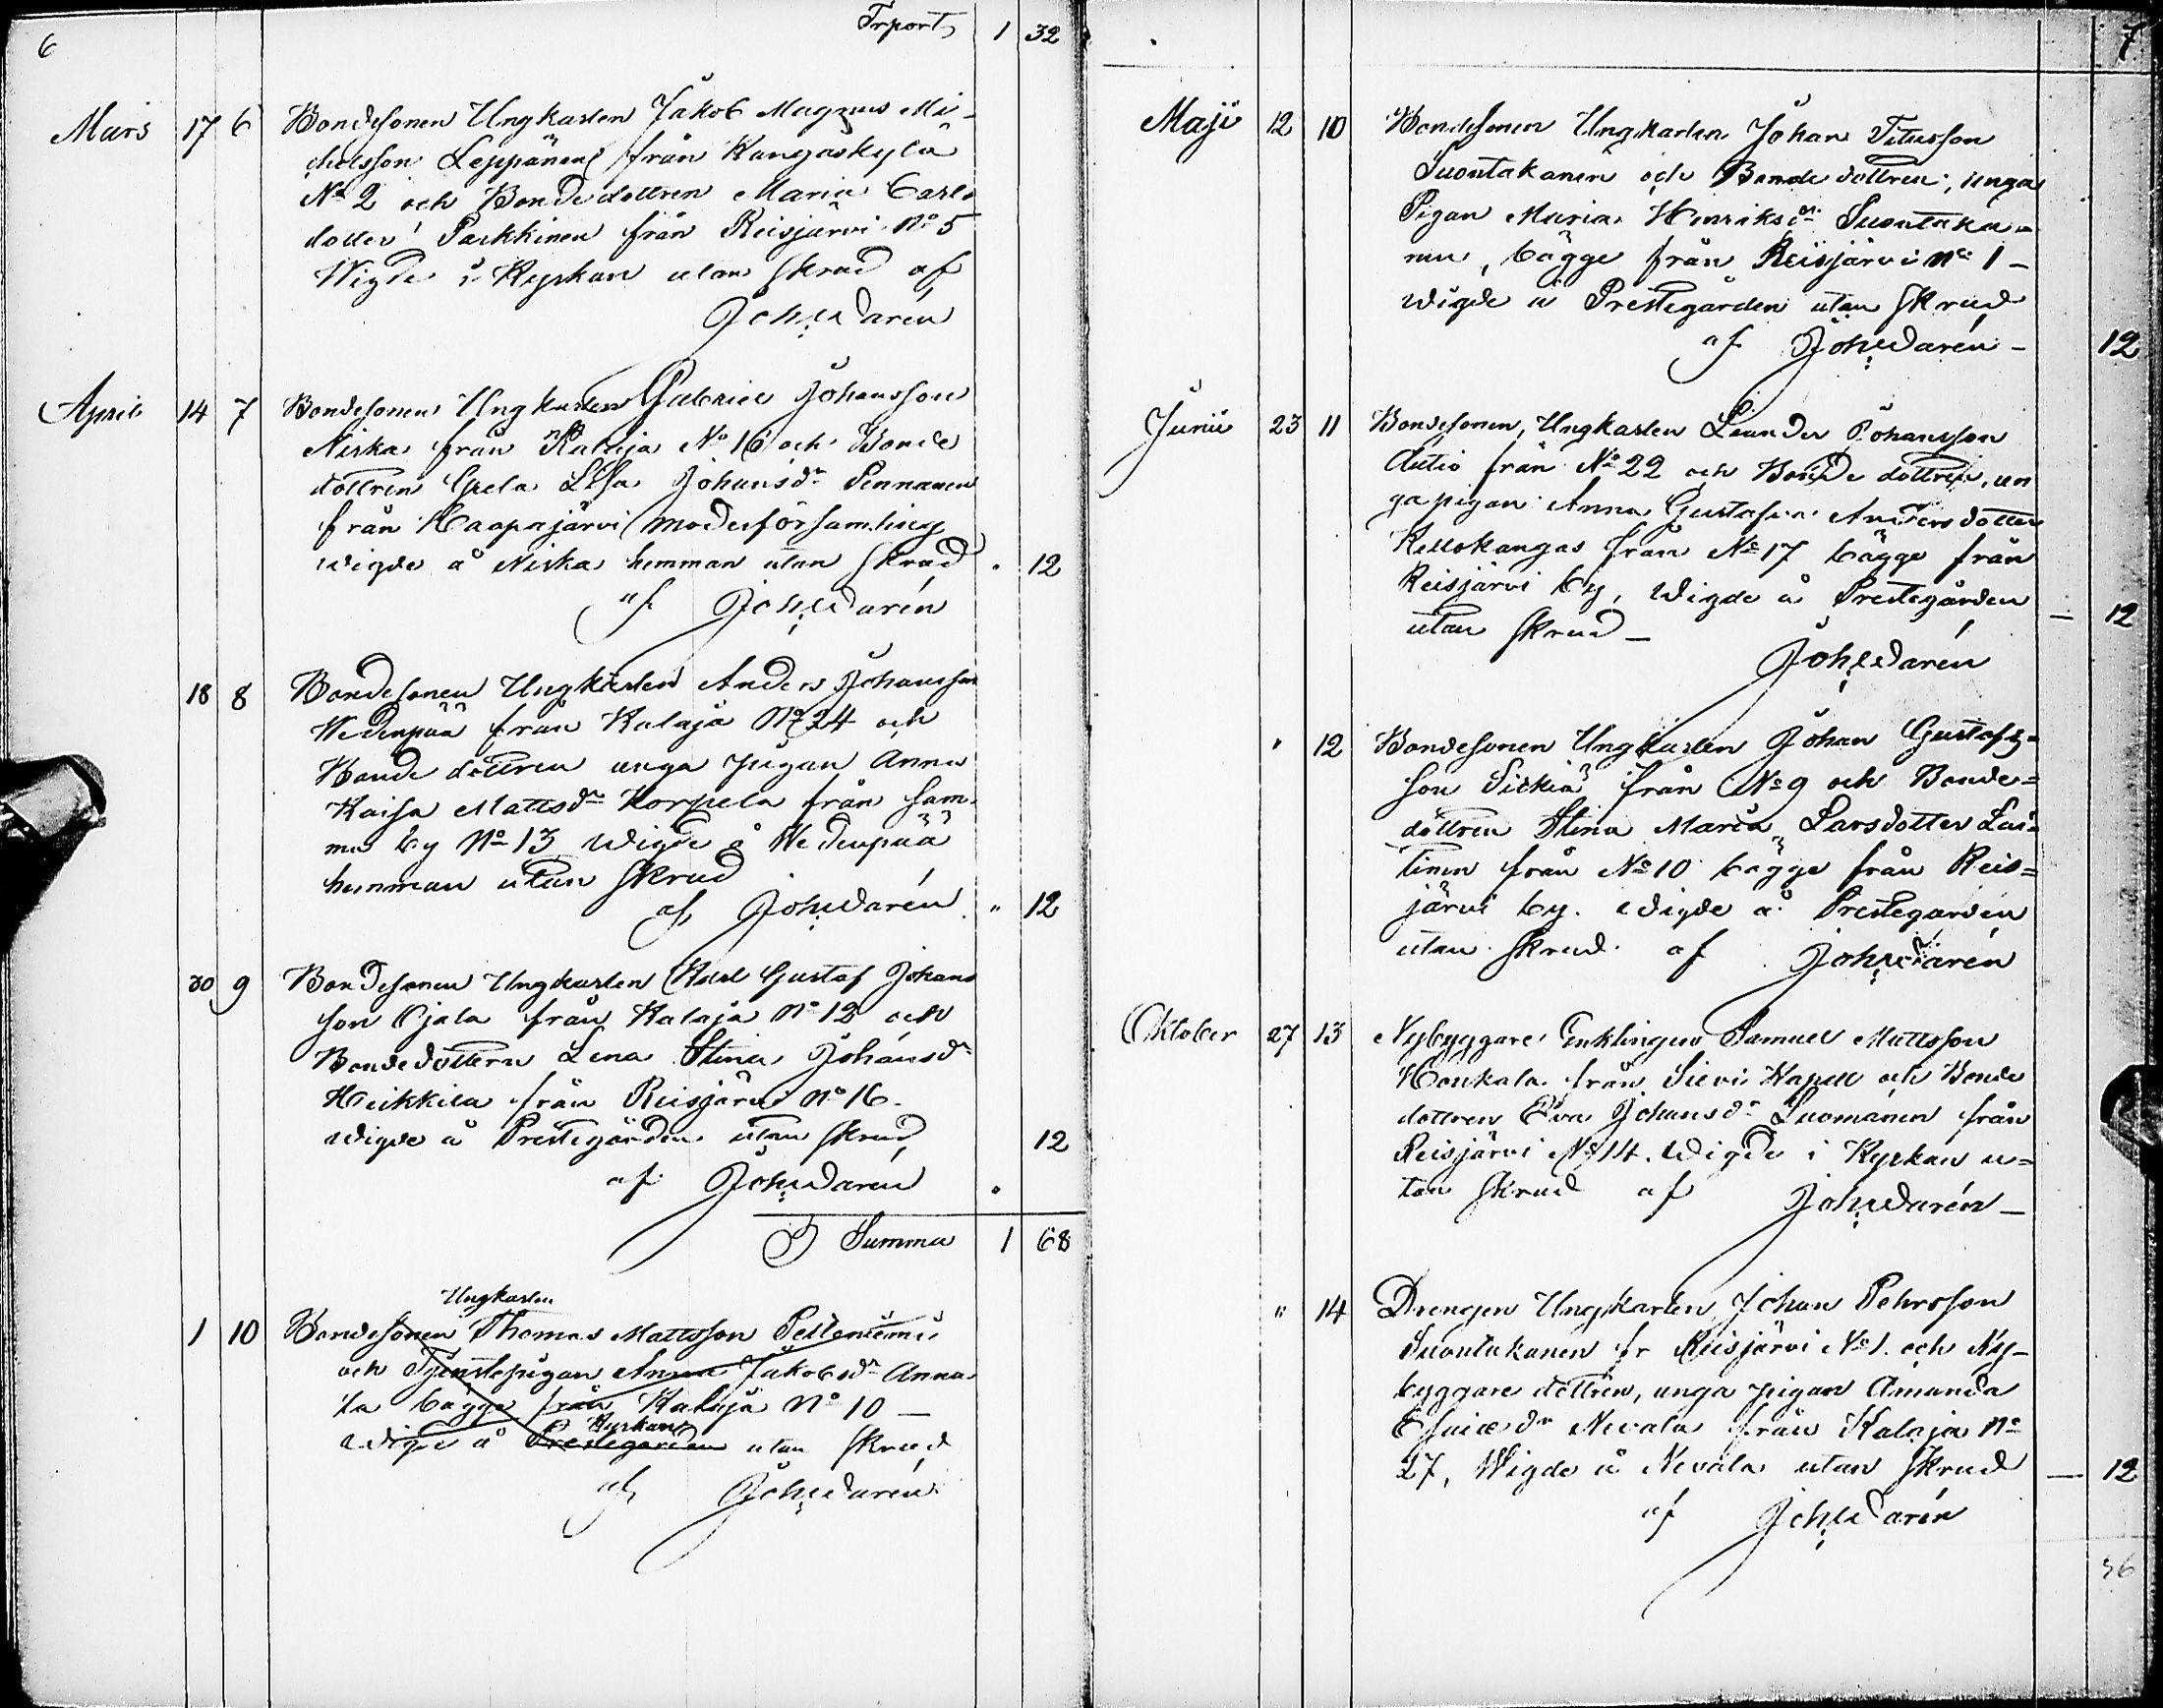 6
Trport 1 32
Mars 17 6 Bondesonen Ungkarlen Jakob Magnus Mi-
chelsson Leppänen från Kangaskylä
No 2 och Bondedottren Maria Carls
dotter Parkkinen från Reisjärvi No 5
Wigde i Kyrkan utan skrud af
Joh: Darén
April 14 7 Bondesonen Ungkarlen Gabriel Johansson
Niska från Kalaja No 16 och Bonde
dottren Greta Lisa Johansdr Pennanen
från Haapajärvi moderförsamling
wigde å Niska hemman utan skrud " 12
af Joh: Darén
18 8 Bondesonen Ungkarlen Anders Johansson
Wedenpää från Kalaja No 24 och
Bonde dottren unga pigan Anna
Kaisa Mattsdr Korpela från sam-
ma by No 13 Wigde å Wedenpää
hemman utan skrud
af Joh: Darén " 12
30 9 Bondesonen Ungkarlen Karl Gustaf Johans
son Ojala från Kalaja No 12 och
Bondedottern Lena Stina Johansdr
Heikkilä från Reisjärvi No 16.
wigde å Prestegården utan skrud 12
af Joh: Darén "
Summa 1 68
Ungkarlen
1 10 Bondesonen Thomas Mattsson Peltoniemi
och Tjenstepigan Anna Jakobsdr Anna
la bägge från Kalaja No 10 —
Kyrkan
wigde å Prestegården utan skrud
af Joh: Darén
7
Maji 12 10 Bondesonen Ungkarlen Johan Titusson
Suontakanen och Bonde dottren, unga
Pigan Maria Henriksdr Suontaka-
nen, bägge från Reisjärvi No 1 —
wigde å Prestegården utan skrud
af Joh: Darén — 12
Junii 23 11 Bondesonen, Ungkarlen Leander Johansson
Autio från No 22 och Bonde dottren, un
ga pigan Anna Gustafva Andersdotter
Kellokangas från No 17 bägge från
Reisjärvi by, Wigde å Prestegården
utan skrud — — 12
Joh: Darén
" 12 Bondesonen Ungkarlen Johan Gustafs=
son Sirkiä från No 9 och Bonde=
dottren Stina Maria Larsdotter Las-
tinen från No 10 bägge från Reis=
järvi by. wigde å Prestegården
utan skrud af Joh: Darén
Oktober 27 13 Nybyggare Enklingen Samuel Mattsson
Honkala från Sievi Kapell och Bonde
dottren Eva Johansdr Luomanen från
Reisjärvi No 14. Wigde i Kyrkan u=
tan skrud af Joh: Darén —
" 14 Drengen Ungkarlen Johan Pehrsson
Suontakanen fr Reisjärvi No 1. och Ny-
byggare dottren, unga pigan Amanda
Esaiædr Nevala från Kalaja No
27, Wigde å Nevala utan skrud — 12
af Joh: Darén
36